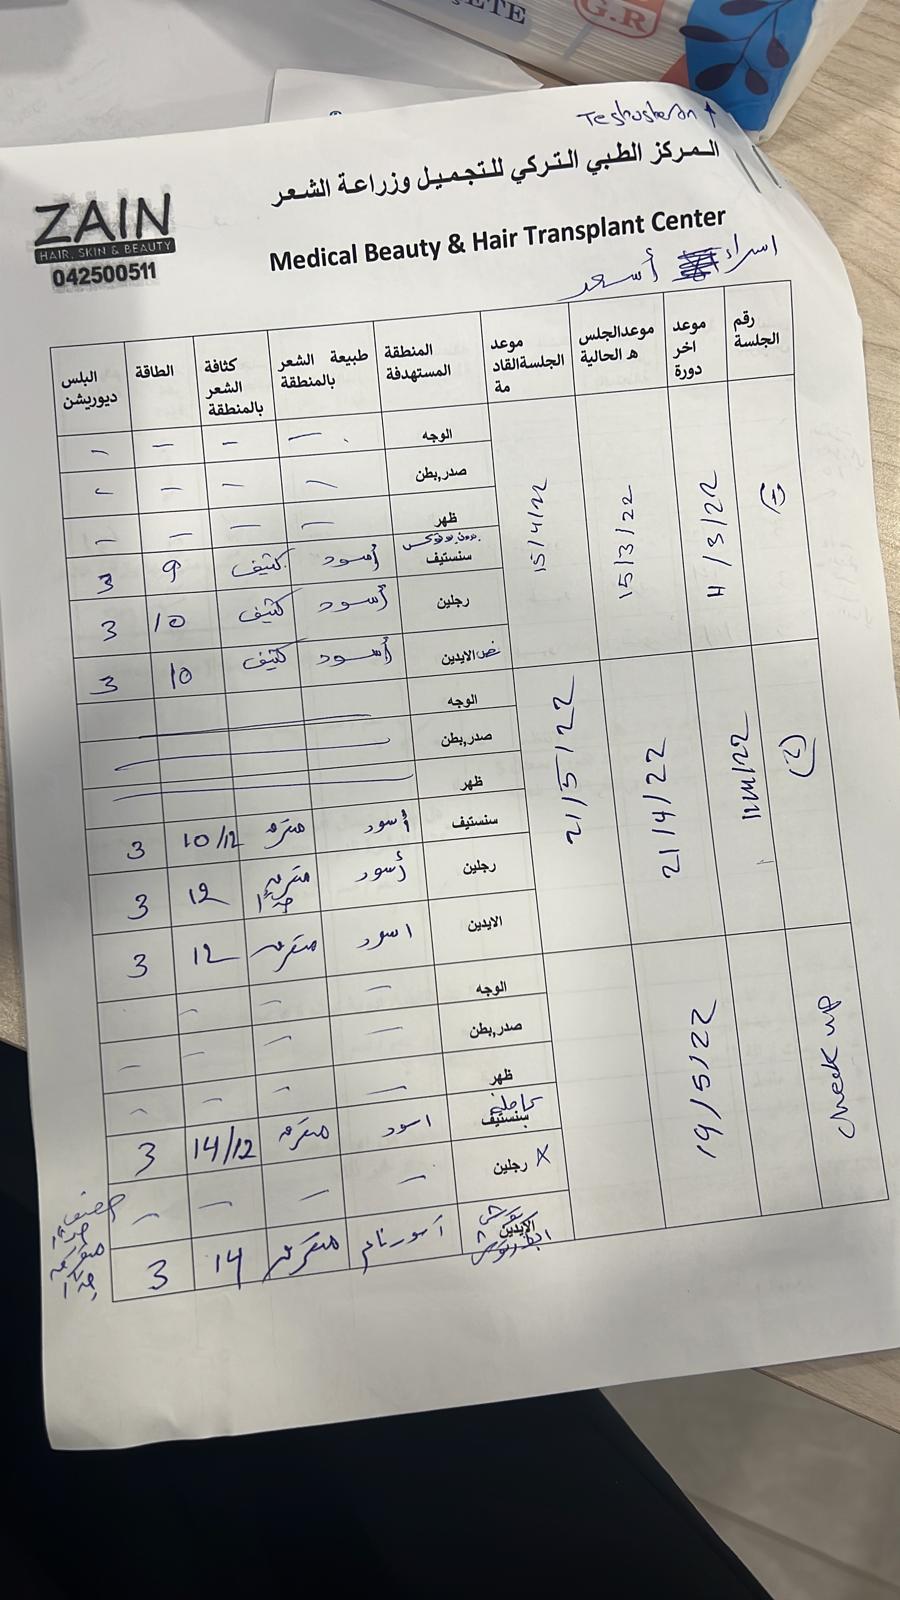 CETE
G.R
Testosteron ↑
المركز الطبي التركي للتجميل وزراعة الشعر
ZAIN
HAIR, SKIN & BEAUTY
042500511
Medical Beauty & Hair Transplant Center
اسراء أسعد
رقم الجلسة | موعد اخر دورة | موعد الجلسه الحالية | موعد الجلسةالقادمة | المنطقة المستهدفة | طبيعة الشعر بالمنطقة | كثافة الشعر بالمنطقة | الطاقة | البلس ديوريشن
(1) | /3/22 | 15/3/22 | 15/4/22
الوجه - - - -
صدر,بطن - - - -
ظهر - - - -
سنستيف أسود كثيف 9 3
رجلين أسود كثيف 10 3
الايدين أسود كثيف 10 3
(2) | /22 | 21/4/22 | 21/5/22
الوجه
صدر,بطن
ظهر
سنستيف أسود متفرقه 10/12 3
رجلين أسود متفرقه جداً 12 3
الايدين اسود متفرقه 12 3
check up | 19/5/22
الوجه - - -
صدر,بطن - - - -
ظهر - - - -
سنستيف اسود متفرقه 14/12 3
X رجلين - - - -
الايدين أسود ناعم متفرقه 14 3
خفيف جداً
متفرقه
جداً